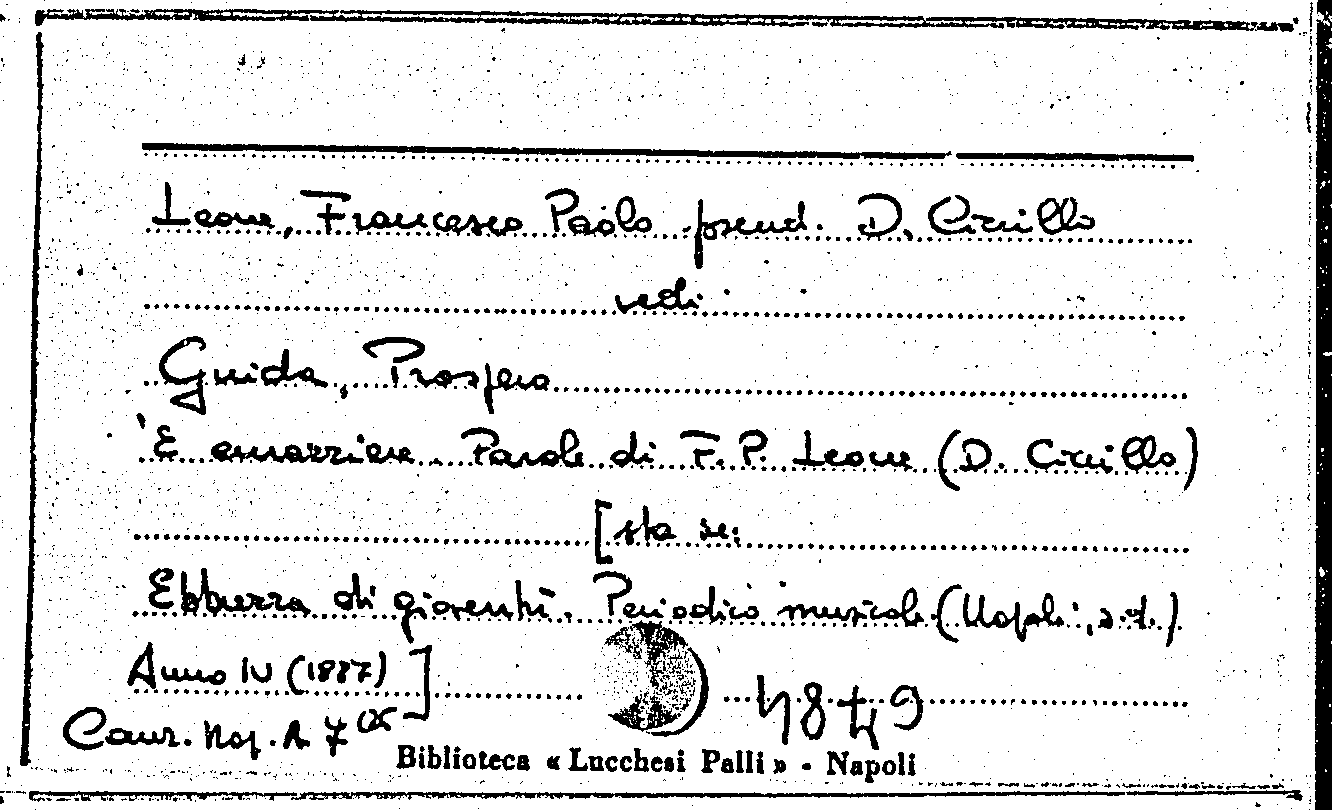 Leone, Francesco Paolo pseud. D. Cirillo
vedi
Guida, Prospero
'E
Parole di F. P. Leone (D. Cirillo)
[sta in:
Ebbrezza di gioventù. Periodico musicale (Napoli, s.t.)
Anno IV (1887)]
Canz. Nap. A 7
Biblioteca « Lucchesi Palli » - Napoli